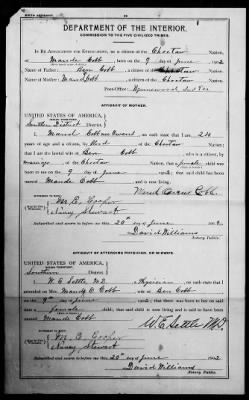 DEPARTMENT OF THE INTERIOR.
COMMISSION TO THE FIVE CIVILIZED TRIBES.
IN RE APPLICATION FOR ENROLLMENT, as a citizen of the Choctaw Nation,
of Maude Cobb born on the 9 day of June 1902
Name of Father: Ben Cobb a citizen of the Nation.
Name of Mother: Maud Cobb a citizen of the Choctaw Nation.
Postoffice Ind Ter
AFFIDAVIT OF MOTHER.
UNITED STATES OF AMERICA
INDIAN TERRITORY
District.
I, Maud Cobb on oath state that I am 24
years of age and a citizen, by blood of the Choctaw Nation;
that I am the lawful wife of Ben Cobb, who is a citizen, by
of the Choctaw Nation; that a female child was
born to me on the 9 day of June, that said child has been
named Maude Cobb and is now living.
Cobb
M. B. Cooper
Nancy Stewart
Subscribed and sworn to before me this 20th day of June 1902
David Williams
Notary Public.
AFFIDAVIT OF ATTENDING PHYSICIAN, OR MIDWIFE.
UNITED STATES OF AMERICA
INDIAN TERRITORY
Southern District.
I, W. E. Settle M.D. a Physician, on oath state that I
attended on Mrs. Cobb wife of Ben Cobb
on the 9th day of June, that there was born to her on said date a
female child; that said child is now living and is said to have been
named Maude Cobb
W. E. Settle M.D.
M. B. Cooper
Nancy Stewart
Subscribed and sworn to before me this 20th day of June 1902
David Williams
Notary Public.